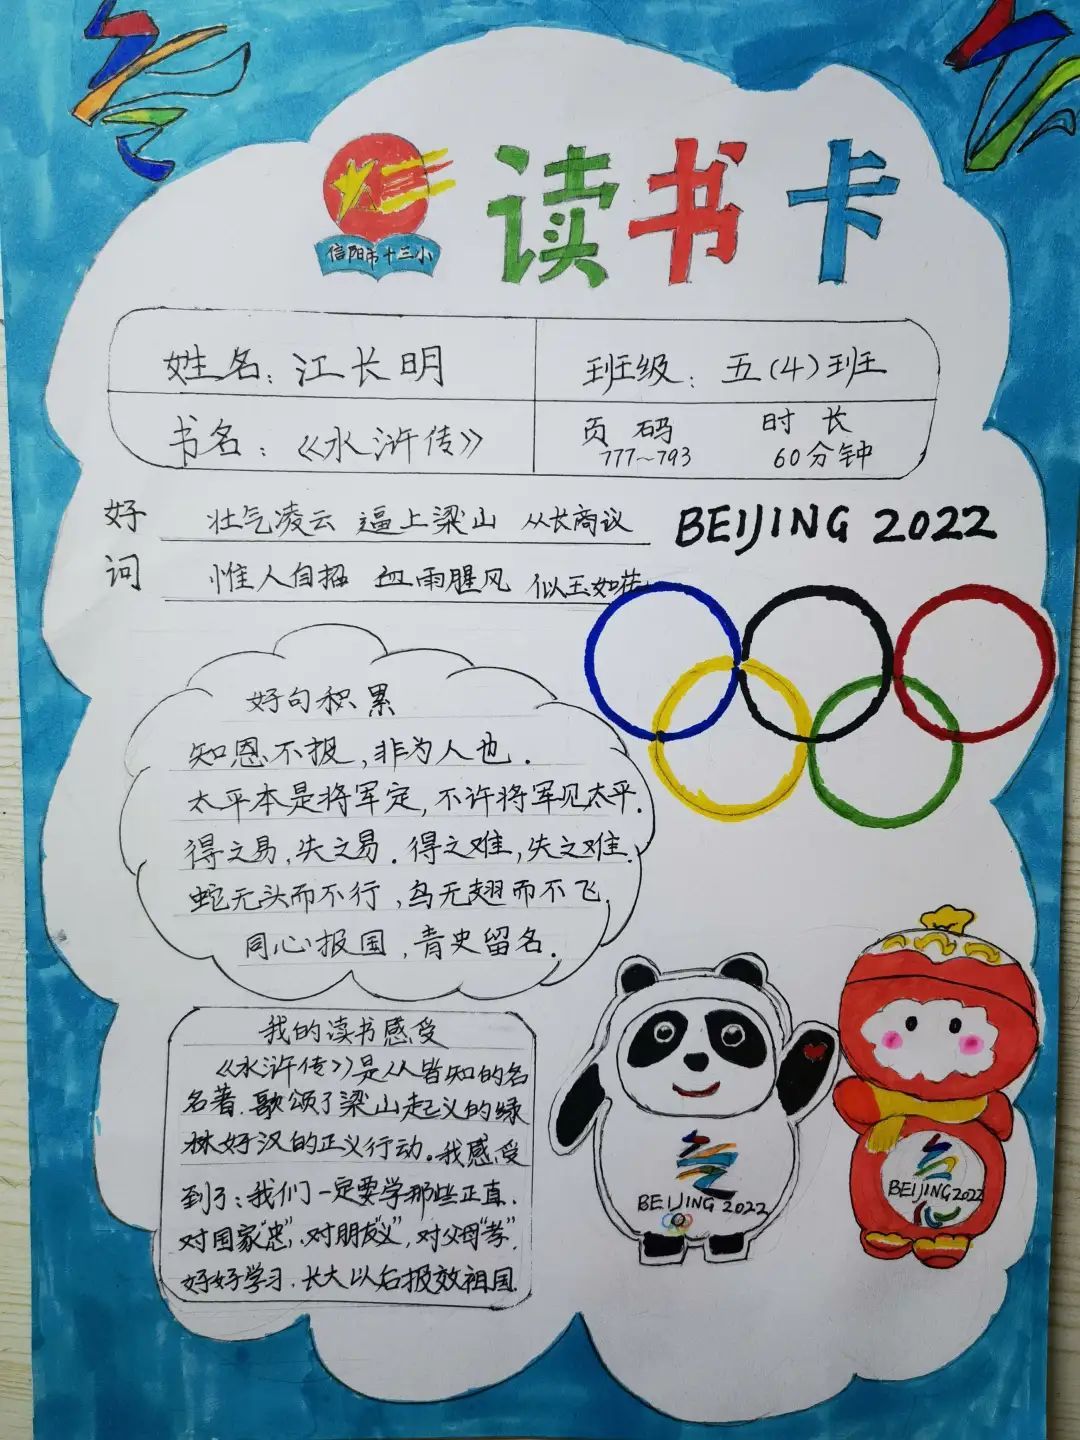 信阳市十三小
读书卡
姓名：江长明
班级：五（4）班
书名：《水浒传》
页码
777～793
时长
60分钟
好词
壮气凌云 逼上梁山 从长商议
惟人自招 血雨腥风 似玉如花
BEIJING 2022
好句积累
知恩不报，非为人也.
太平本是将军定，不许将军见太平.
得之易，失之易.得之难，失之难.
蛇无头而不行，鸟无翅而不飞.
同心报国，青史留名.
我的读书感受
《水浒传》是人皆知的名
名著.歌颂了梁山起义的绿
林好汉的正义行动。我感受
到了：我们一定要学那些正直.
对国家“忠”、对朋友“义”，对父母“孝”.
好好学习.长大以后报效祖国.
BEIJING 2022
BEIJING 2022